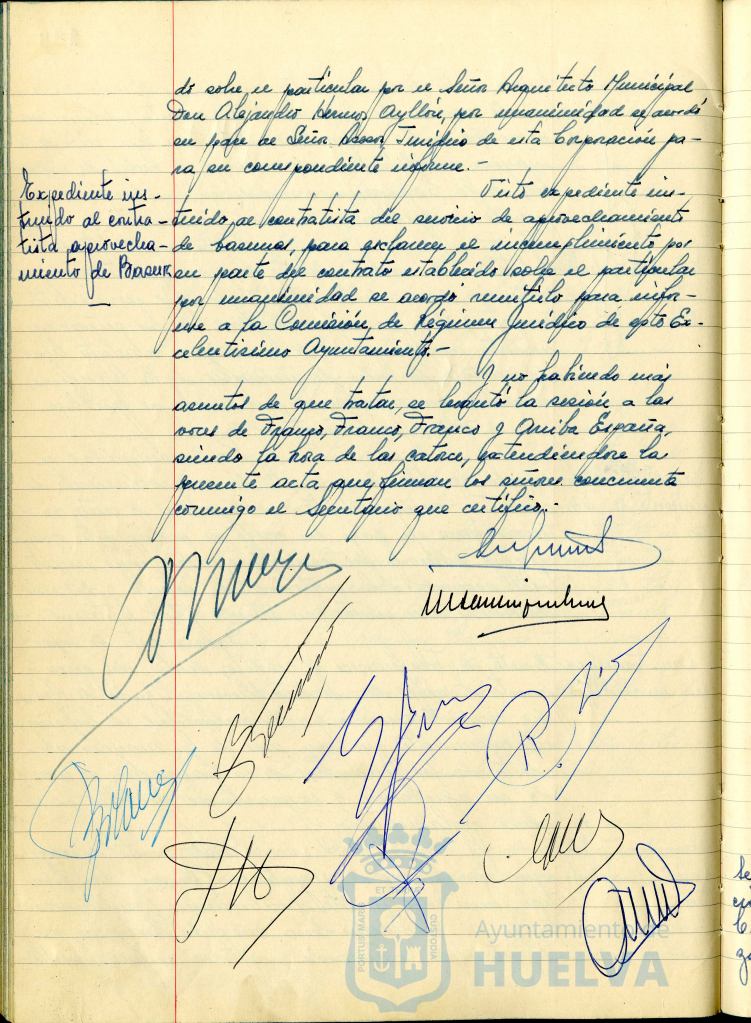 do sobre el particular por el Señor Arquitecto Municipal
Don Alejandro Herrero Ayllón, por unanimidad se acordó
su pase al Señor Asesor Jurídico de esta Corporación pa-
ra su correspondiente informe.-
Expediente ins-
truido al contra-
tista aprovecha-
miento de Basuras
Visto expediente ins-
truido al contratista del servicio de aprovechamiento
de basuras, para el incumplimiento por
su parte del contrato establecido sobre el particular
por unanimidad se acordó remitirlo para infor-
me a la Comisión de Régimen Jurídico de este Ex-
celentísimo Ayuntamiento.-
Y no habiendo más
asuntos de que tratar, se levantó la sesión a las
voces de Franco, Franco, Franco y Arriba España,
siendo la hora de las catorce, extendiéndose la
presente acta que firman los señores concurrentes
conmigo el Secretario que certifico.-
PORTUS MARIS ET TERRAE CUSTODIA
Ayuntamiento de
HUELVA